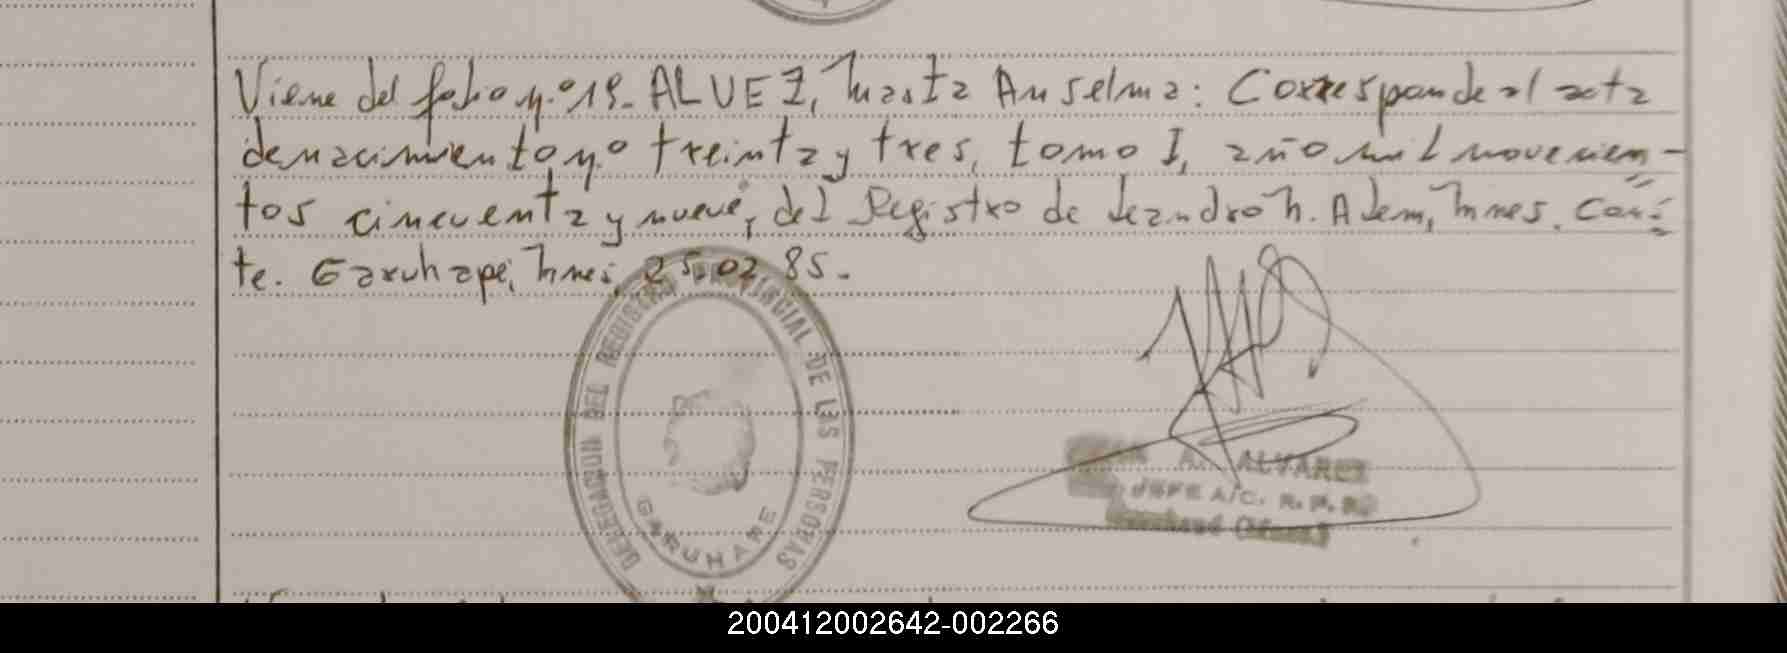 Viene del folio n.º 19. ALVEZ, Marta Anselma: Corresponde al acta
de nacimiento n.º treinta y tres, tomo I, año mil novecien-
tos cincuenta y nueve, del Registro de Leandro N. Alem, Mnes. Cons-
te. Garuhapé, Mnes, 25.02.85.-
DELEGACION DEL REGISTRO PROVINCIAL DE LAS PERSONAS
GARUHAPE
A. ALVAREZ
JEFE A/C. R. P. P.
Garuhapé (Mnes.)
200412002642-002266